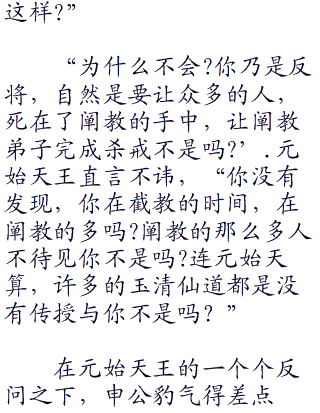 这样?”
“为什么不会?你乃是反
将，自然是要让众多的人，
死在了阐教的手中，让阐教
弟子完成杀戒不是吗?’.元
始天王直言不讳，“你没有
发现，你在截教的时间，在
阐教的多吗?阐教的那么多人
不待见你不是吗?连元始天
算，许多的玉清仙道都是没
有传授与你不是吗？”
在元始天王的一个个反
问之下，申公豹气得差点